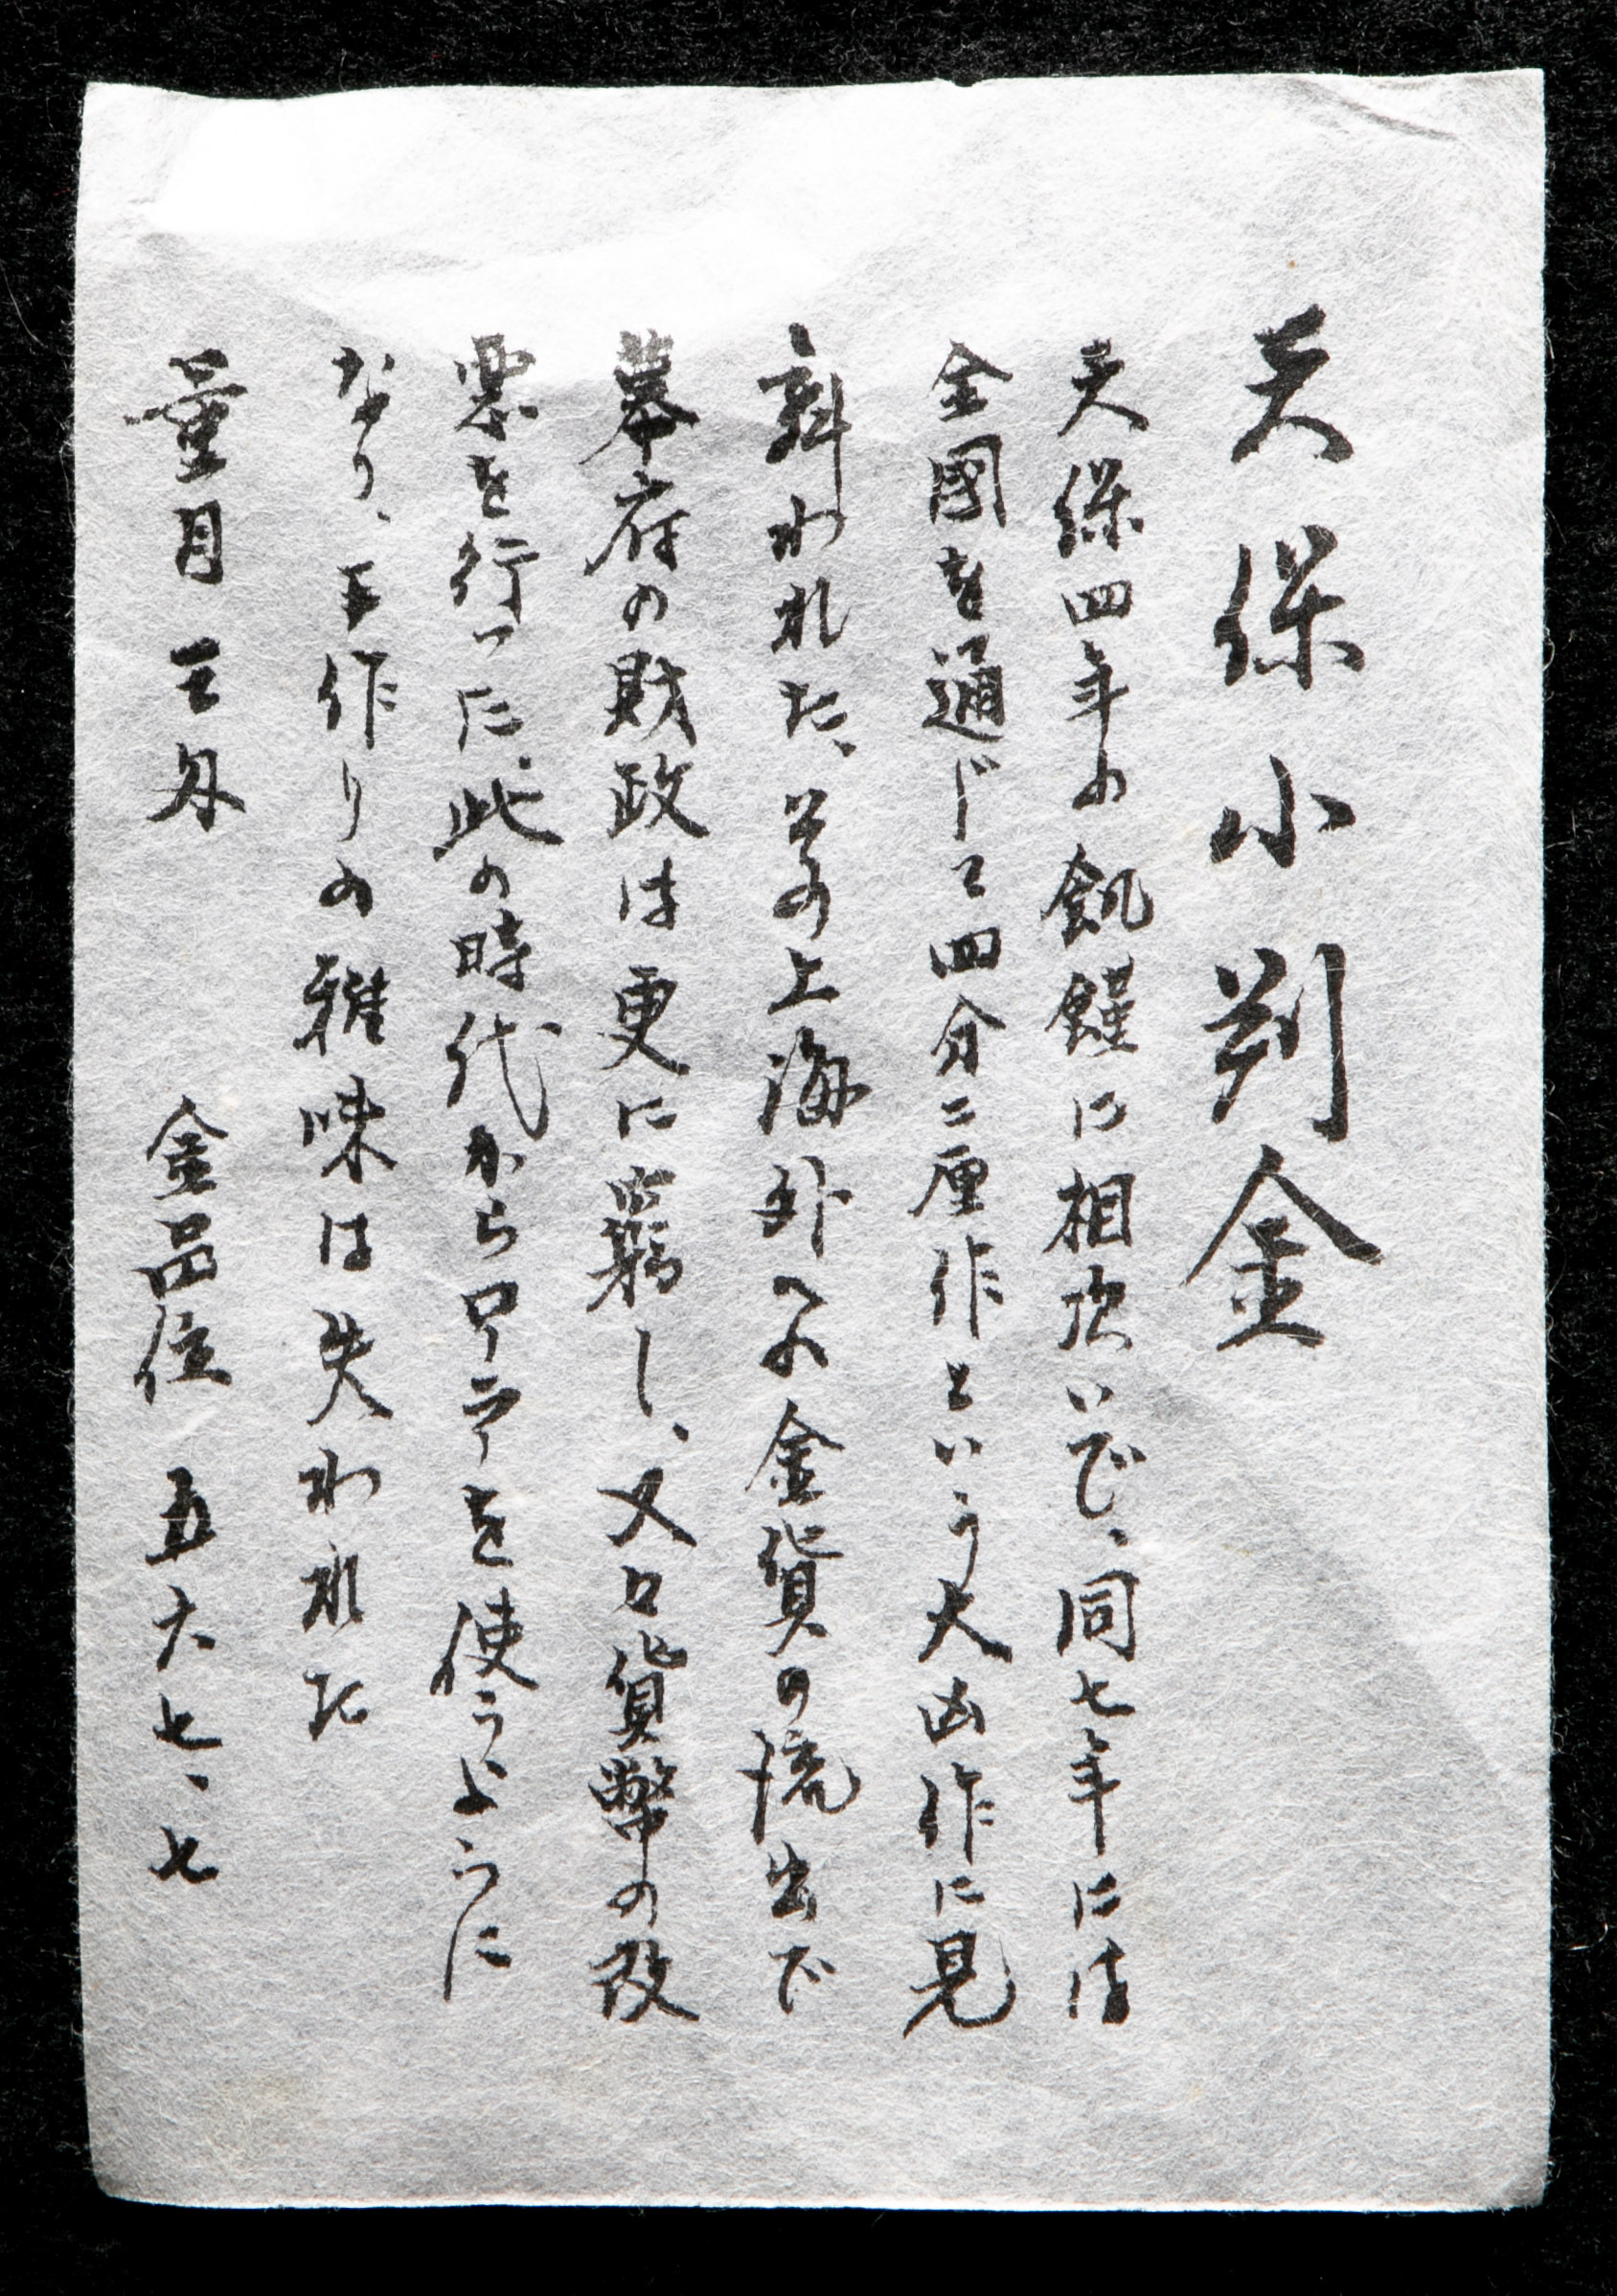 天保小判金
天保四年の飢饉に相次いで、同七年には
全國を通じて四分二厘作という大凶作に見
舞われた、その上海外への金貨の流出で
幕府の財政は更に窮し、又々貨幣の改
悪を行った、此の時代からローラーを使うように
なり、手作りの雅味は失われた
量目 三匁 金品位 五六七、七